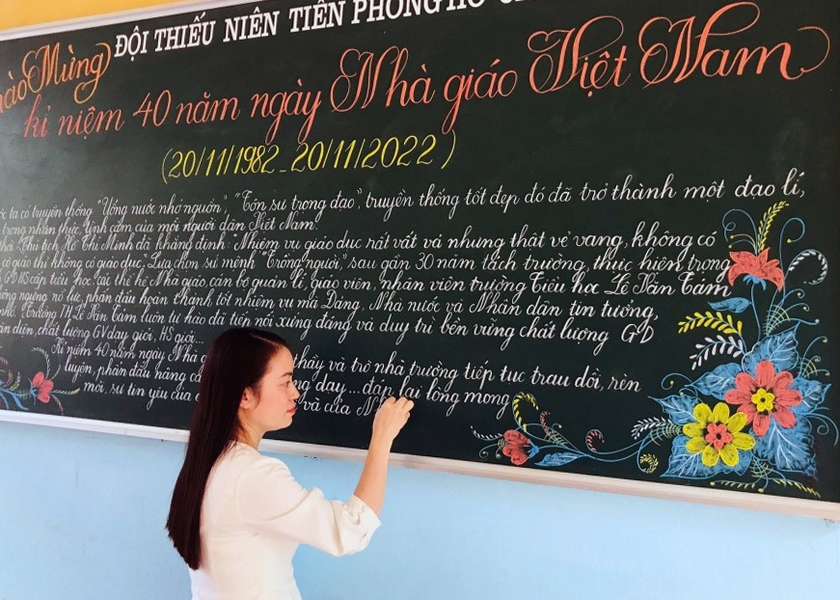 ĐỘI THIẾU NIÊN TIỀN PHONG HỒ
Mừng
kỉ niệm 40 năm ngày Nhà giáo Việt Nam
(20/11/1982_20/11/2022)
ta có truyền thống "Uống nước nhớ nguồn", "Tôn sư trọng đạo", truyền thống tốt đẹp đó đã trở thành một đạo lí,
trong nhận thức, tình cảm của mỗi người dân Việt Nam.
Chủ tịch Hồ Chí Minh đã khẳng định: Nhiệm vụ giáo dục rất vất vả nhưng thật vẻ vang, không có
cô giáo thì không có giáo dục". Lựa chọn sứ mệnh "Trồng người", sau gần 30 năm tách trường, thực hiện trọng
cấp tiểu học, các thế hệ Nhà giáo, cán bộ quản lí, giáo viên, nhân viên trường Tiểu học Lê Văn Tám
ngừng nỗ lực, phấn đấu hoàn thành tốt nhiệm vụ mà Đảng, Nhà nước và Nhân dân tin tưởng,
Trường TH Lê Văn Tám luôn tự hào đã tiếp nối xứng đáng và duy trì bền vững chất lượng GD
diện, chất lượng GV dạy giỏi, HS giỏi...
Kỉ niệm 40 năm ngày Nhà thầy và trò nhà trường tiếp tục trau dồi, rèn
luyện, phấn đấu nâng dạy...đáp lại lòng mong
mỏi, sự tin yêu của và của